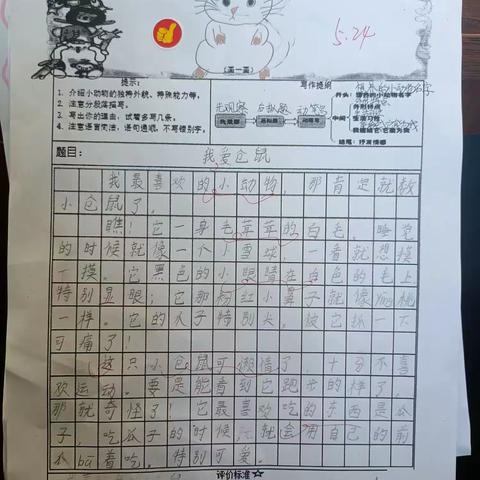 (画一画)
5.24
提示:
1. 介绍小动物的独特外貌、特殊能力等。
2. 注意分段落描写。
3. 写出你的理由,试着多写几条。
4. 注意语言简洁,语句通顺,不写错别字。
写作提纲
先观察 后拟题 动笔写
开头:
外形特点
中间:生活习性
结尾:抒发情感
题目: 我爱仓鼠
我最喜欢的小动物,那肯定就数
小仓鼠了。
瞧!它一身毛茸茸的白毛,睡觉
的时候就像一个小雪球,一看就想摸
一摸。它黑色的小眼睛在白色的毛上
特别显眼;它那粉红小鼻子就像
一样。它的爪子特别尖,被它抓一下
可痛了!
这只小仓鼠可懒惰了,十分不喜
欢运动。要是能看到它跑步的样子,
那就奇怪了!它最喜欢吃的东西是瓜
子,吃瓜子的时候它就会用自己的前
爪bā着吃。特别可爱。
评价标准☆